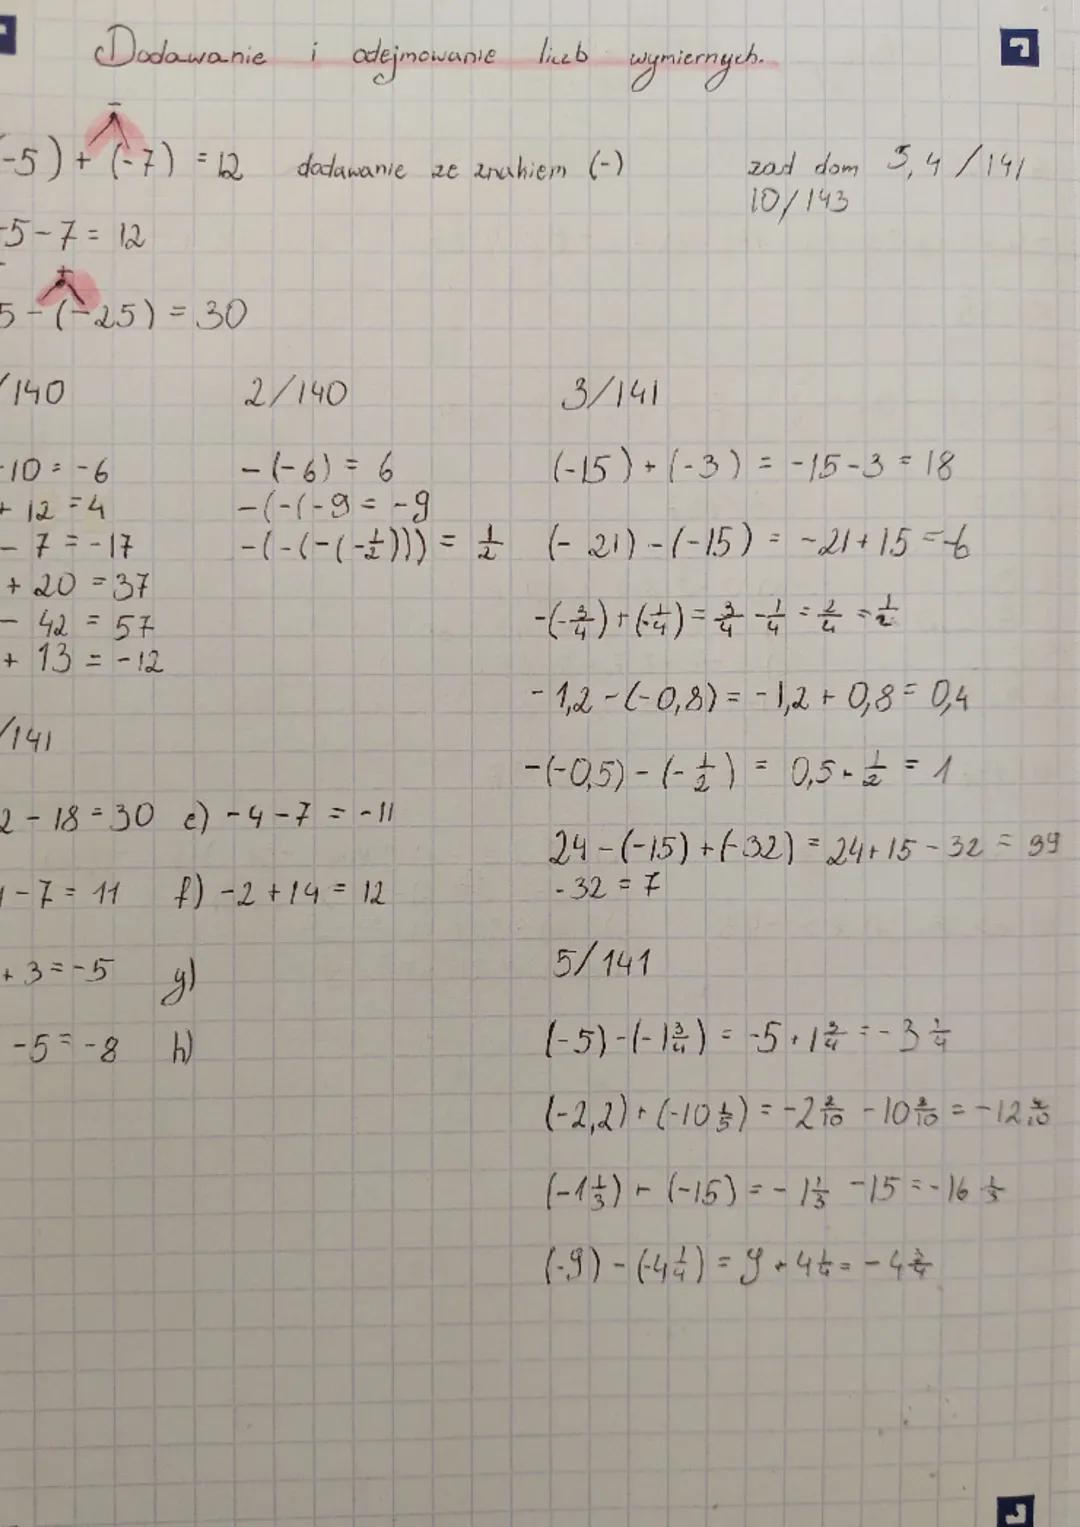 Dodawanie i odejmowanie liczb wymiernych.
-5) + (-7) = 12 dodawanie ze znakiem (-) zad dom 3,4/141
10/143
-5-7 = 12
5-(-25) = 30
/140 2/140 3/141
-10 = -6 -(-6) = 6 (-15) + (-3) = -15-3 = 18
+ 12 = 4 -(-(-9 = -9
- 7 = -17 -(-(-(-1/2))) = 1/2 (-21) - (-15) = -21+15 = -6
+ 20 = 37
- 42 = 57 -(-3/4) + (-1/4) = 3/4 - 1/4 = 2/4 = 1/2
+ 13 = -12
-1,2 - (-0,8) = -1,2 + 0,8 = 0,4
/141
-(-0,5) - (-1/2) = 0,5 + 1/2 = 1
2 - 18 = 30 e) -4-7 = -11
24 - (-15) + (-32) = 24+15-32 = 39
-7 = 11 f) -2+14 = 12 -32 = 7
+ 3 = -5 g) 5/141
-5 = -8 h) (-5) - (-1 3/4) = -5 + 1 3/4 = -3 1/4
(-2,2) + (-10 1/5) = -2 2/10 - 10 2/10 = -12 4/10
(-1 1/3) + (-15) = -1 1/3 - 15 = -16 1/3
(-9) - (-4 1/4) = 9 + 4 1/4 = -4 3/4